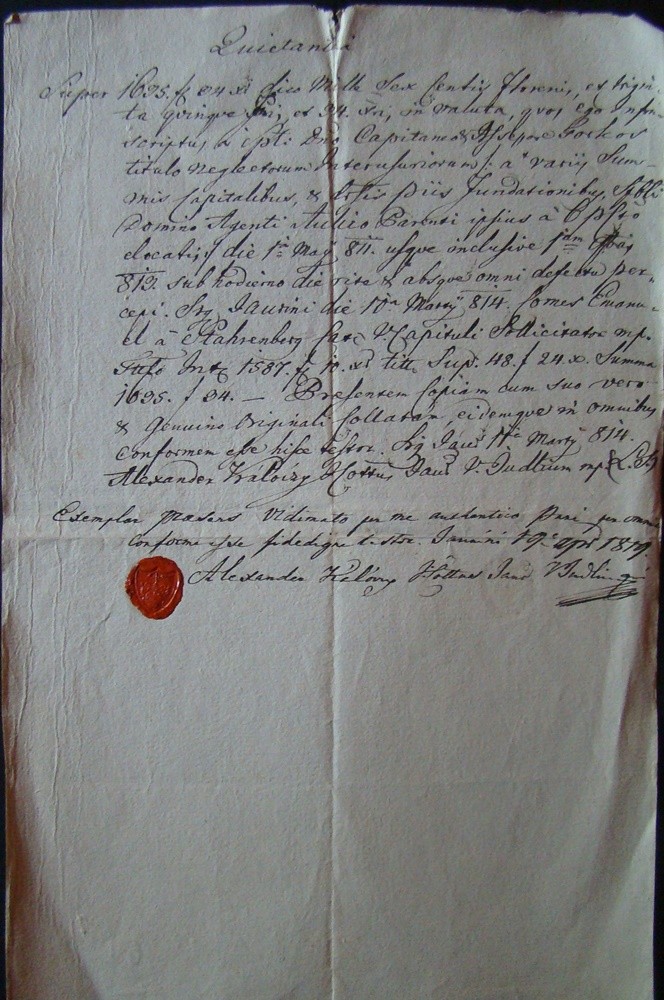 Quietantia
Super 1635. f 34 xr dico Mille Sex Centis florenis, et trigin-
ta quinque et 34. xris, in valuta, quos ego infra
scriptus à spli Dno Capitaneo Josepho
titulo neglectorum Interusuriorum /: a variis Sum-
mis Capitalibus, & piis Fundationibus,
Domino Agenti Julio Parenti ipsius à
elocatis die 1a Maÿ 811. usque inclusive 1am
813. sub hodierno die rite & absque omni defectu per-
cepi. Sig. Jaurini die 11a Martÿ 814. Comes Emanu-
el à Stahrenberg V. Capituli Sollicitator mp.
Int 1587. f 10. xr titt. Sup. 48. f 24 x. Summa
1635. f 34. — Presentem Copiam cum suo vero
& Genuino Originali Collatam eidemque in omnibus
Conformem esse hisce testor. Sig Jaur 11a Martÿ 814.
Alexander Jaur V. Judlium mp (L.S.)
Exemplar praesens Vidimato per me authentico Pari per omnia
Conforme esse fidedigne testor. Jaurini
Alexander Jaur V Judlium